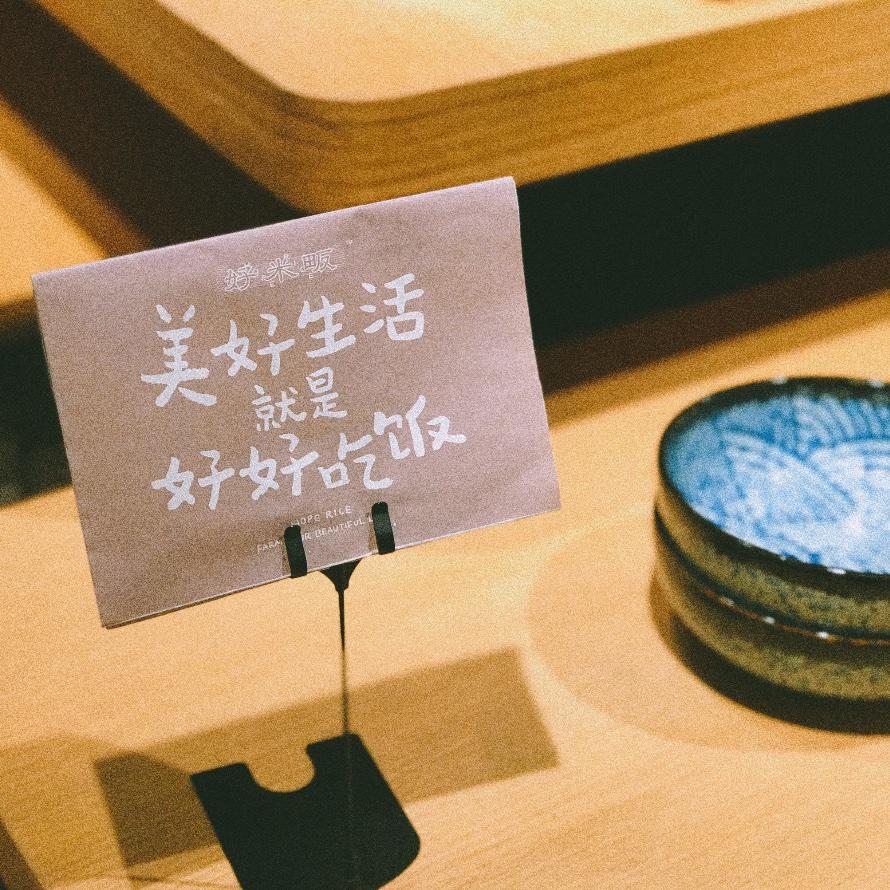 好米畈
美好生活
就是
好好吃饭
HOPE RICE
BEAUTIFUL